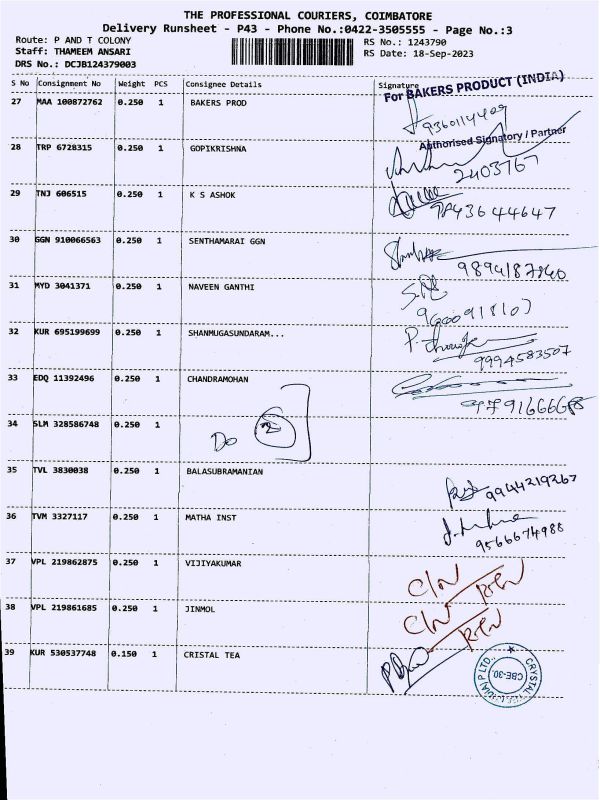 THE PROFESSIONAL COURIERS, COIMBATORE
Delivery Runsheet - P43 - Phone No.:0422-3505555 - Page No.:3
Route: P AND T COLONY
RS No.: 1243790
Staff: THAMEEM ANSARI
RS Date: 18-Sep-2023
DRS No.: DCJB124379003
S No Consignment No Weight PCS Consignee Details Signature
For BAKERS PRODUCT (INDIA)
27 MAA 100872762 0.250 1 BAKERS PROD
9360114409
Authorised Signatory / Partner
28 TRP 6728315 0.250 1 GOPIKRISHNA
2403767
29 TNJ 606515 0.250 1 K S ASHOK
9843644647
30 GGN 910066563 0.250 1 SENTHAMARAI GGN
9894187940
31 MYD 3041371 0.250 1 NAVEEN GANTHI
9600918107
32 KUR 695199699 0.250 1 SHANMUGASUNDARAM...
9994583507
33 EDQ 11392496 0.250 1 CHANDRAMOHAN
34 SLM 328586748 0.250 1
Do 2
35 TVL 3830038 0.250 1 BALASUBRAMANIAN
9944219267
36 TVM 3327117 0.250 1 MATHA INST
9566674988
37 VPL 219862875 0.250 1 VIJIYAKUMAR
38 VPL 219861685 0.250 1 JINMOL
39 KUR 530537748 0.150 1 CRISTAL TEA
CBE-30.